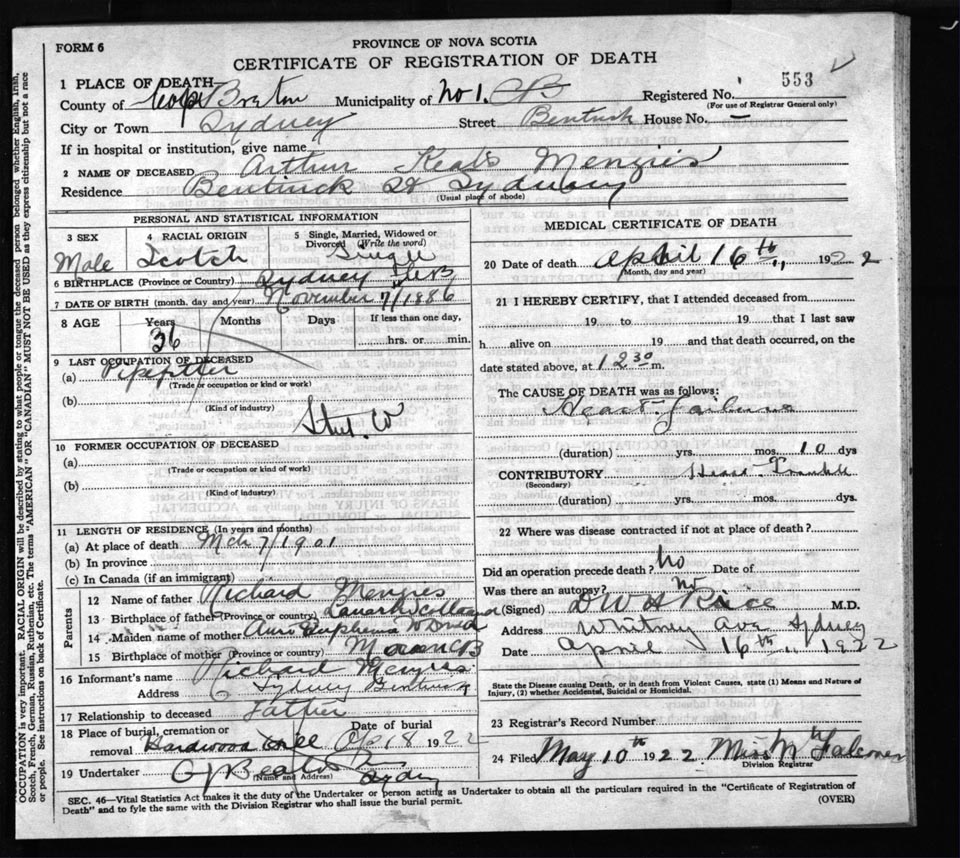 FORM 6
PROVINCE OF NOVA SCOTIA
CERTIFICATE OF REGISTRATION OF DEATH
553
1 PLACE OF DEATH
County of Cape Breton Municipality of No 1. CB Registered No.
(For use of Registrar General only)
City or Town Sydney Street Bentinck House No.
If in hospital or institution, give name
2 NAME OF DECEASED Arthur Keats Menzies
Residence Bentinck St Sydney
(Usual place of abode)
PERSONAL AND STATISTICAL INFORMATION
3 SEX Male
4 RACIAL ORIGIN Scotch
5 Single, Married, Widowed or Divorced (Write the word) Single
6 BIRTHPLACE (Province or Country) Sydney
7 DATE OF BIRTH (month, day and year) November 7/1886
8 AGE Years Months Days If less than one day,
36 hrs. or min.
9 LAST OCCUPATION OF DECEASED
(a) Pipefitter
(Trade or occupation or kind or work)
(b)
(Kind of industry)
10 FORMER OCCUPATION OF DECEASED
(a)
(Trade or occupation or kind of work)
(b)
(Kind of industry)
11 LENGTH OF RESIDENCE (In years and months)
(a) At place of death Mch 7/1901
(b) In province
(c) In Canada (if an immigrant)
Parents
12 Name of father Richard Menzies
13 Birthplace of father (Province or country) Lanark Scotland
14 Maiden name of mother Euphemia
15 Birthplace of mother (Province or country)
16 Informant's name Richard Menzies
Address Sydney Bentinck
17 Relationship to deceased Father
18 Place of burial, cremation or removal Hardwood Hill Date of burial Ap 18 1922
19 Undertaker Sydney
(Name and Address)
MEDICAL CERTIFICATE OF DEATH
20 Date of death April 16th 1922
(Month, day and year)
21 I HEREBY CERTIFY, that I attended deceased from
19 to 19 that I last saw
h alive on 19 and that death occurred, on the
date stated above, at 12 30 m.
The CAUSE OF DEATH was as follows:
Heart Failure
(duration) yrs. mos. 10 dys
CONTRIBUTORY Heart Trouble
(Secondary)
(duration) yrs. mos. dys.
22 Where was disease contracted if not at place of death?
Did an operation precede death? No Date of
Was there an autopsy? No
(Signed) M.D.
Address Whitney Ave Sydney
Date April 16th 1922
State the Disease causing Death, or in death from Violent Causes, state (1) Means and Nature of
Injury, (2) whether Accidental, Suicidal or Homicidal.
23 Registrar's Record Number
24 Filed May 10th 1922 Miss Falconer
Division Registrar
SEC. 46—Vital Statistics Act makes it the duty of the Undertaker or person acting as Undertaker to obtain all the particulars required in the "Certificate of Registration of
Death" and to fyle the same with the Division Registrar who shall issue the burial permit.
(OVER)
OCCUPATION is very important. RACIAL ORIGIN will be described by stating to what people or tongue the deceased person belonged whether English, Irish,
Scotch, French, German, Russian, Ruthenian, etc. The terms "AMERICAN" OR "CANADIAN" MUST NOT BE USED as they express citizenship but not a race
or people. See instructions on back of Certificate.